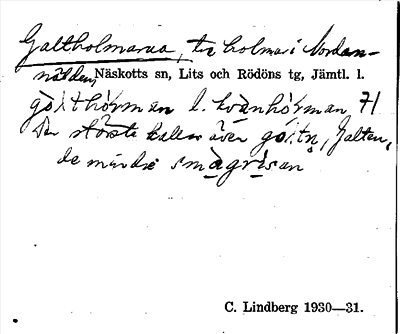 Galtholmarna, tre holmar i Nordan-
nälden, Näskotts sn, Lits och Rödöns tg, Jämtl. l.
gòlthórman l. kvànhórman 71
Den största kallas även góltn, Galten,
de mindre smàgrísan
C. Lindberg 1930—31.